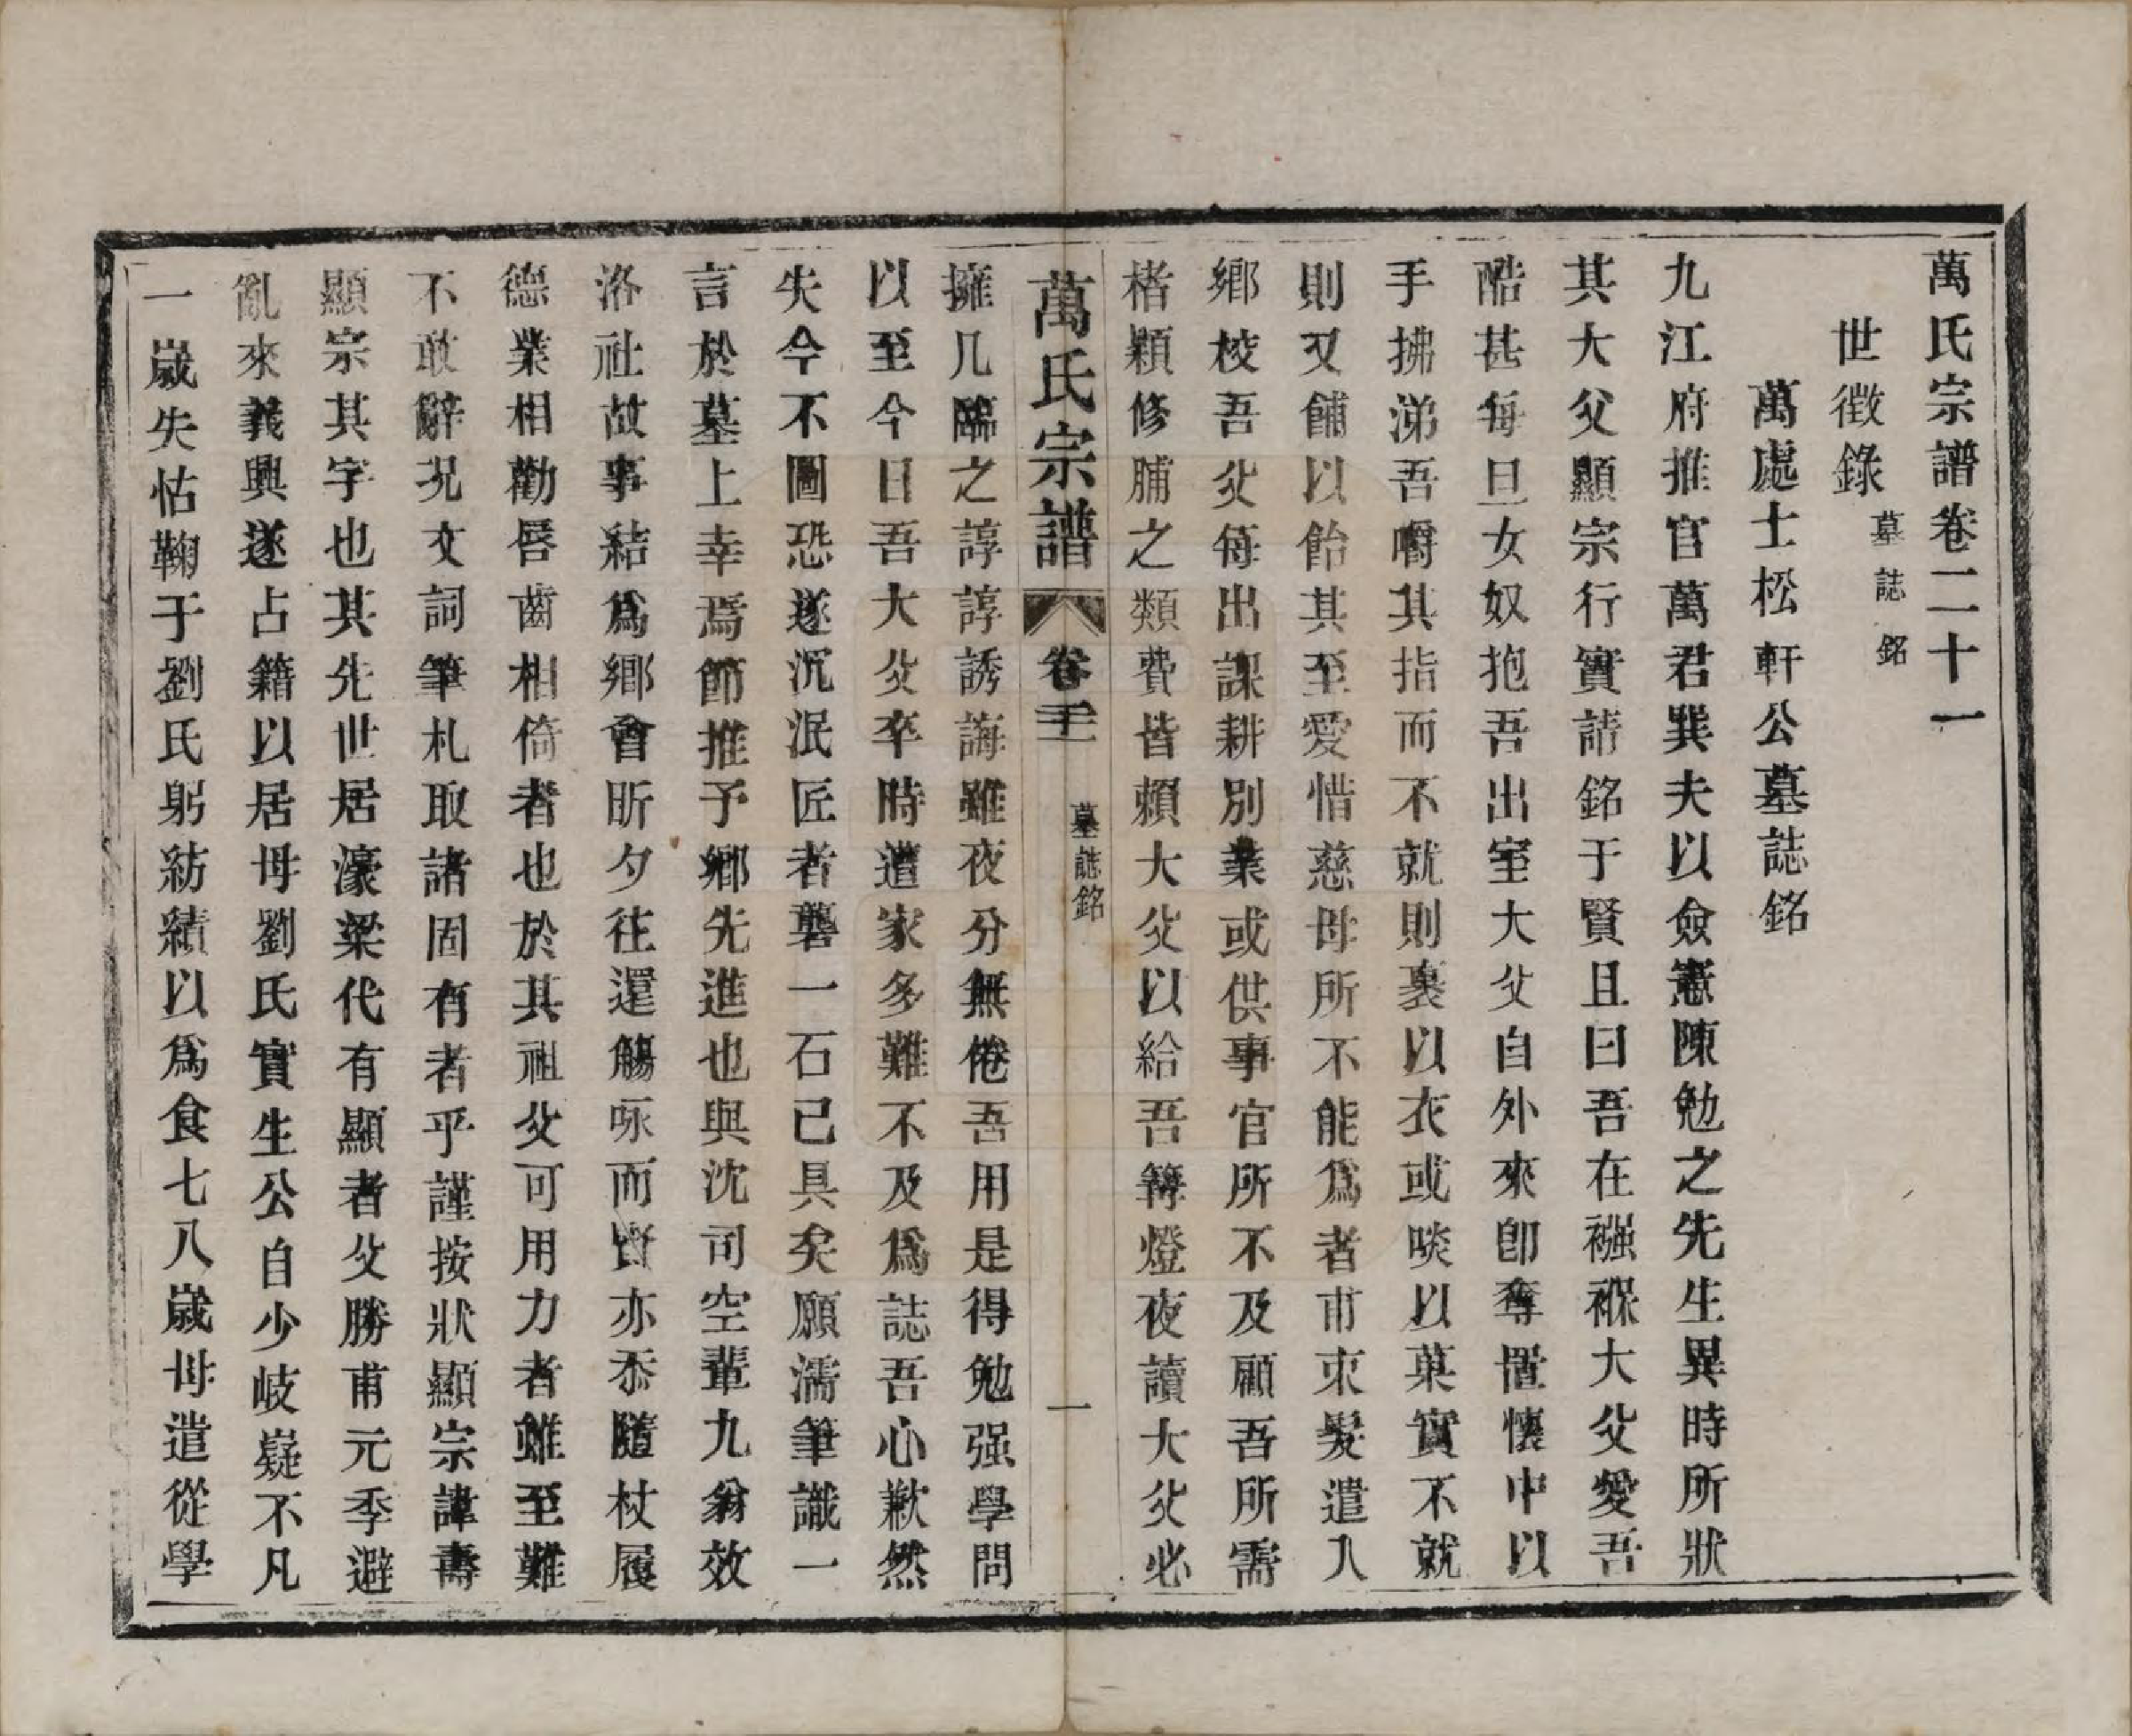 萬氏宗譜卷二十一
世徵錄
墓誌銘
萬處士松軒公墓誌銘
九江府推官萬君巽夫以僉憲陳勉之先生異時所狀
其大父顯宗行實請銘于賢且曰吾在襁褓大父愛吾
酷甚每旦女奴抱吾出室大父自外來卽奪置懷中以
手拂涕吾嚼其指而不就則裹以衣或啖以菓實不就
則又餔以飴其至愛惜慈母所不能爲者甫束髮遣入
鄉校吾父每出課耕別業或供事官所不及顧吾所需
楮穎修脯之類費皆賴大父以給吾篝燈夜讀大父必
萬氏宗譜
卷二十一
墓誌銘
一
擁几臨之諄諄誘誨雖夜分無倦吾用是得勉强學問
以至今日吾大父卒時遭家多難不及爲誌吾心歉然
失今不圖恐遂沉泯匠者礱一石已具矣願濡筆識一
言於墓上幸焉節推予鄉先進也與沈司空輩九翁效
洛社故事結爲鄉會昕夕往還觴咏而賢亦忝隨杖履
德業相勸唇齒相倚者也於其祖父可用力者雖至難
不敢辭況文詞筆札取諸固有者乎謹按狀顯宗諱壽
顯宗其字也其先世居濠梁代有顯者父勝甫元季避
亂來義興遂占籍以居母劉氏實生公自少岐嶷不凡
一歲失怙鞠于劉氏躬紡績以爲食七八歲母遣從學